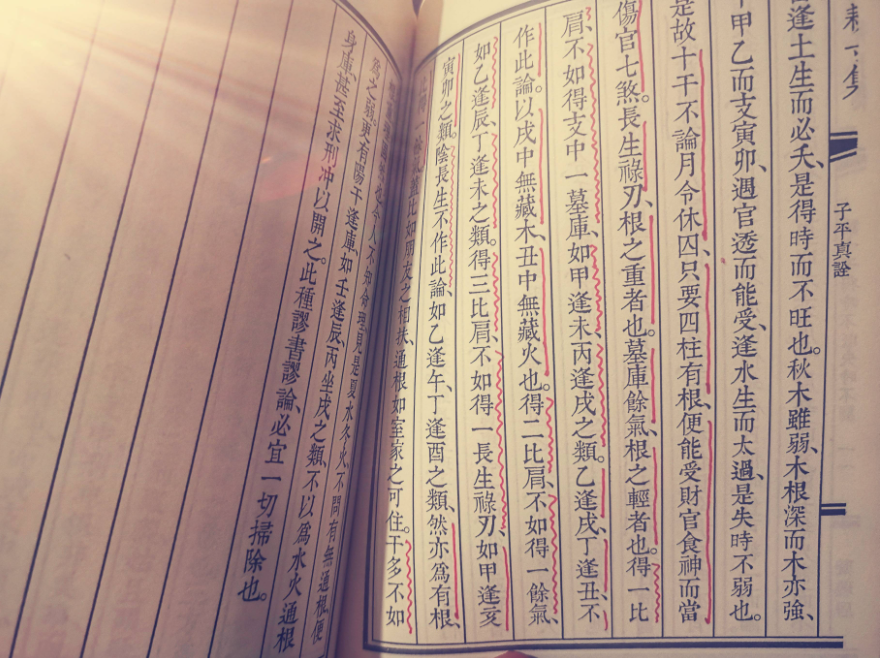 子平真詮
逢土生而必夭、是得時而不旺也。秋木雖弱、木根深而木亦強、
干甲乙而支寅卯、遇官透而能受、逢水生而太過、是失時不弱也。
是故十干不論月令休囚、只要四柱有根、便能受財官食神而當
傷官七煞。長生祿刃、根之重者也。墓庫餘氣、根之輕者也。得一比
肩、不如得支中一墓庫、如甲逢未、丙逢戌之類。乙逢戌、丁逢丑、不
作此論。以戌中無藏木、丑中無藏火也。得二比肩、不如得一餘氣、
如乙逢辰、丁逢未之類。得三比肩、不如得一長生祿刃、如甲逢亥
寅卯之類。陰長生不作此論、如乙逢午、丁逢酉之類、然亦為有根
比如朋友之相扶、通根如室家之可住。干多不如
也。今人不知命理、見是夏水冬火、不問有無通根、便
為之弱。更有陽干逢庫、如壬逢辰、丙坐戌之類、不以為水火通根
身庫、甚至求刑沖以開之。此種謬書謬論、必宜一切掃除也。